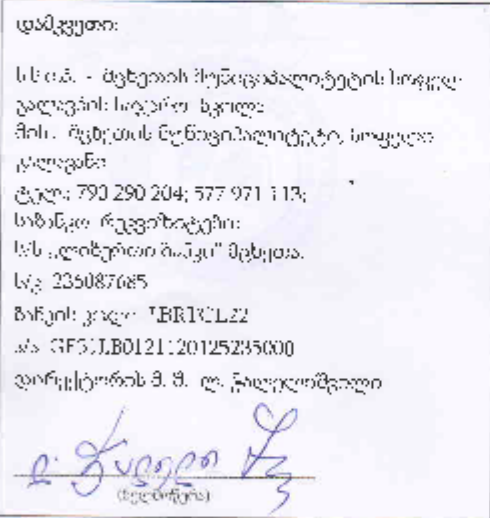 დამკვეთი:
ს.ს.ი.პ. - მცხეთის მუნიციპალიტეტის სოფელ
საჯარო სკოლა
მის.: მცხეთის მუნიციპალიტეტი, სოფელი
ტელ.: 790 290 204; 577 971 113;
საბანკო რეკვიზიტები:
ს/ს „ლიბერთი ბანკი" მცხეთა.
ს/კ 236087685
ბანკის კოდი: LBRTGE22
ა/ა
დირექტორის მ. შ. ლ. ჭალელიშვილი
(ხელმოწერა)